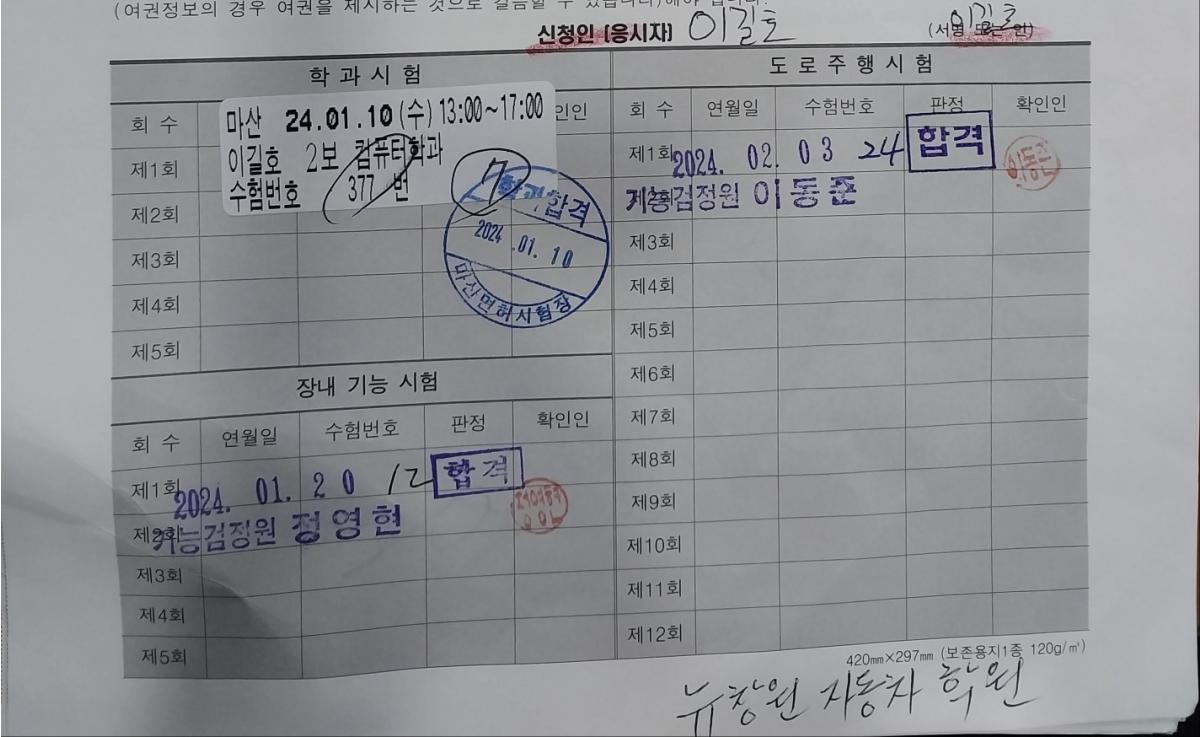 (여권정보의 경우 여권을 제시하는 것으로 갈음할 수 있습니다)해야 합니다.
신청인 (응시자) 이길호 (서명 또는 인) 이길호
학 과 시 험
회 수 확인인
마산 24.01.10 (수) 13:00~17:00
이길호 2보 컴퓨터학과
수험번호 377 번
제1회
제2회
제3회
제4회
제5회
학과합격
2024 .01. 10
마산면허시험장
장내 기능 시험
회 수 연월일 수험번호 판정 확인인
제1회 2024. 01. 20 12 합격
제2회 기능검정원 정영현
제3회
제4회
제5회
도 로 주 행 시 험
회 수 연월일 수험번호 판정 확인인
제1회 2024. 02. 03 24 합격 이동준
제2회 기능검정원 이동준
제3회
제4회
제5회
제6회
제7회
제8회
제9회
제10회
제11회
제12회
420㎜×297㎜ (보존용지1종 120g/㎡)
뉴창원 자동차 학원